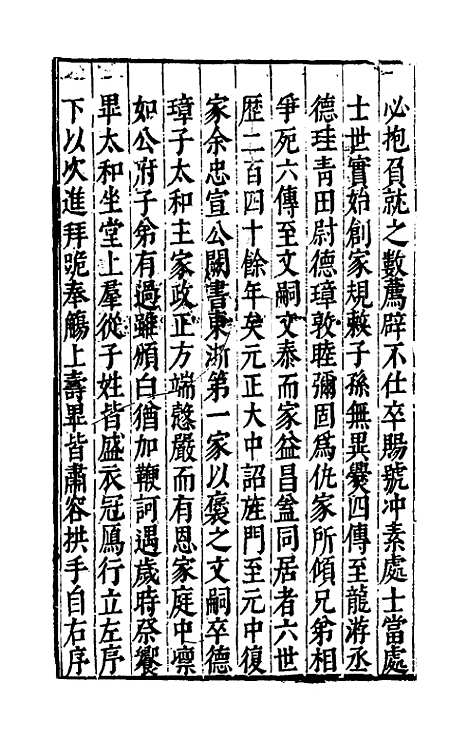 必抱負就之數薦辟不仕卒賜號冲素處士當處
士世實始創家規敕子孫無異爨四傳至龍游丞
德珪青田尉德璋敦睦彌固爲仇家所傾兄弟相
爭死六傳至文嗣文泰而家益昌盖同居者六世
歷二百四十餘年矣元正大中詔旌門至元中復
家余忠宣公闕書東浙第一家以褒之文嗣卒德
璋子太和主家政正方端慤嚴而有恩家庭中凛
如公府子弟有過雖頒白猶加鞭訶遇歲時祭饗
畢太和坐堂上羣從子姓皆盛衣冠鴈行立左序
下以次進拜跪奉觴上壽畢皆肅容拱手自右序